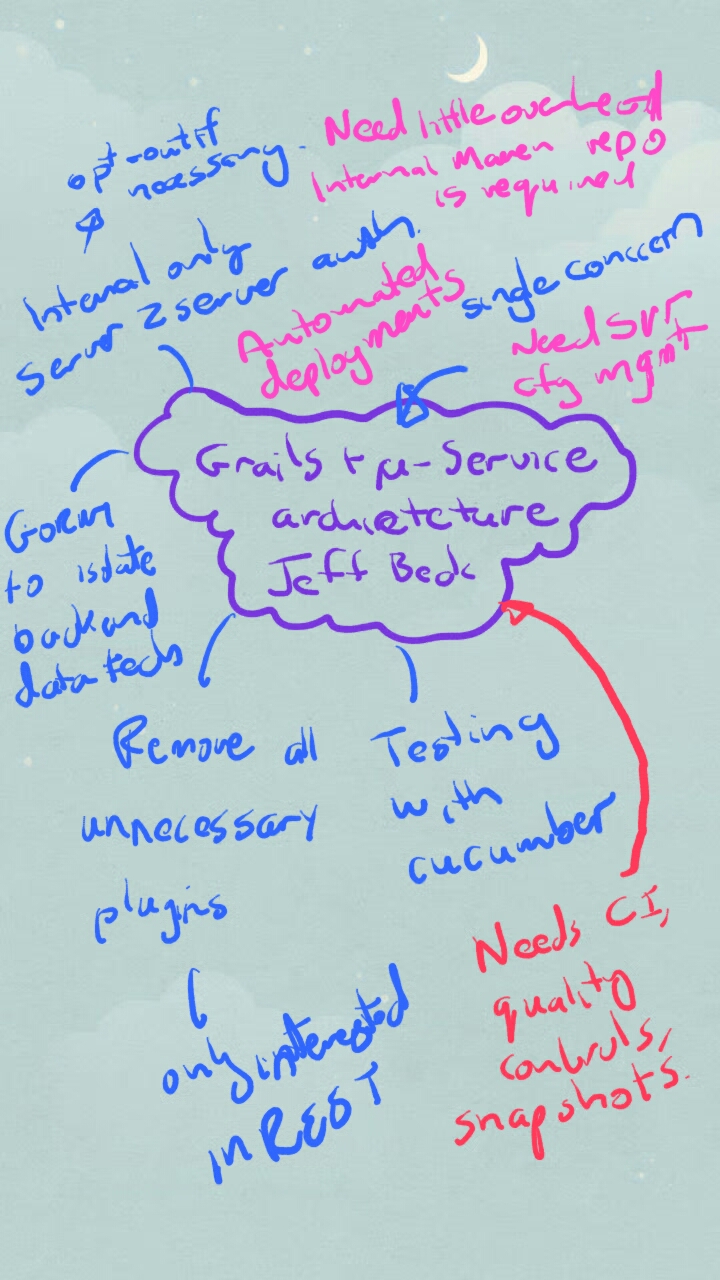 opt-out if
necessary.
Need little overhead
Internal Maven repo
is required
Internal only
Server 2 server auth.
Automated
deployments
single concern
Need SVR
cfg mgmt
Grails + μ-Service
archictetcture
Jeff Beck
GORM
to isolate
backend
data techs
Remove all
unnecessary
plugins
Testing
with
cucumber
only interested
in REST
Needs CI,
quality
controls,
snapshots.